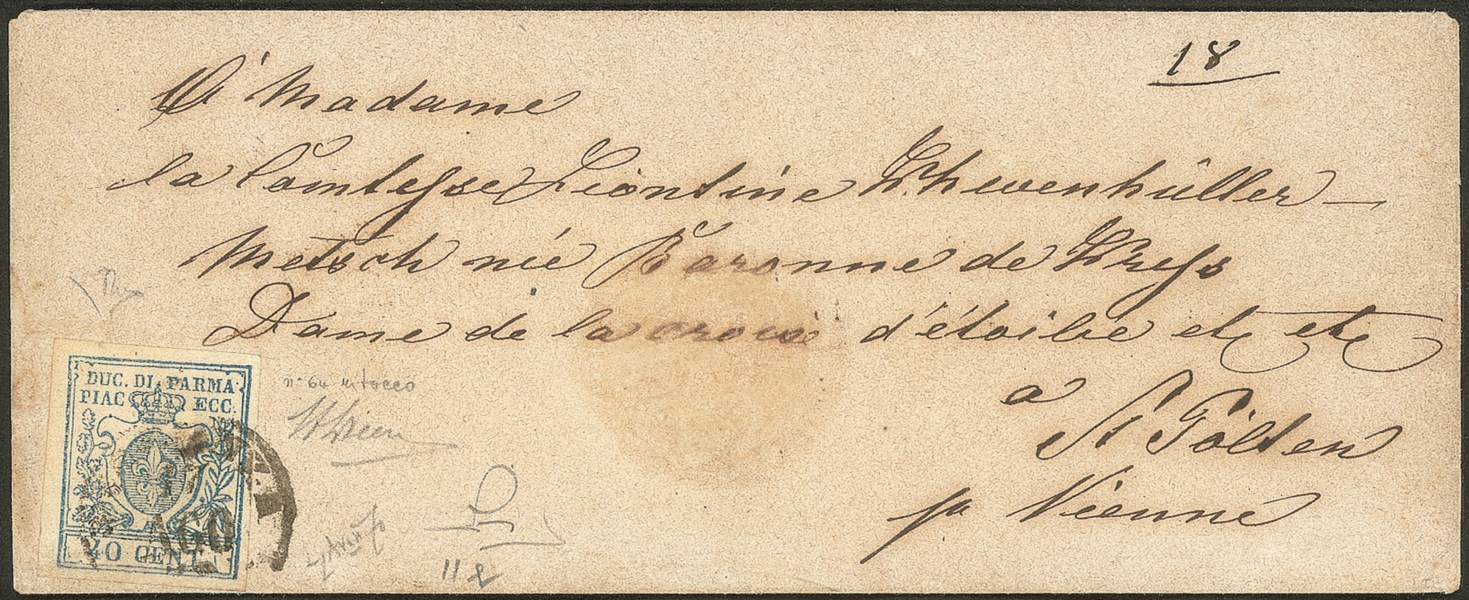 18
A Madame
la Comtesse Léontine Khevenhüller –
Metsch née Baronne de Kress
Dame de la croix d'étoile etc etc
à
St Pölten
pr Vienne
DUC. DI PARMA
PIAC ECC.
40 CENT
AGO
n. 6a ritocco
11 2